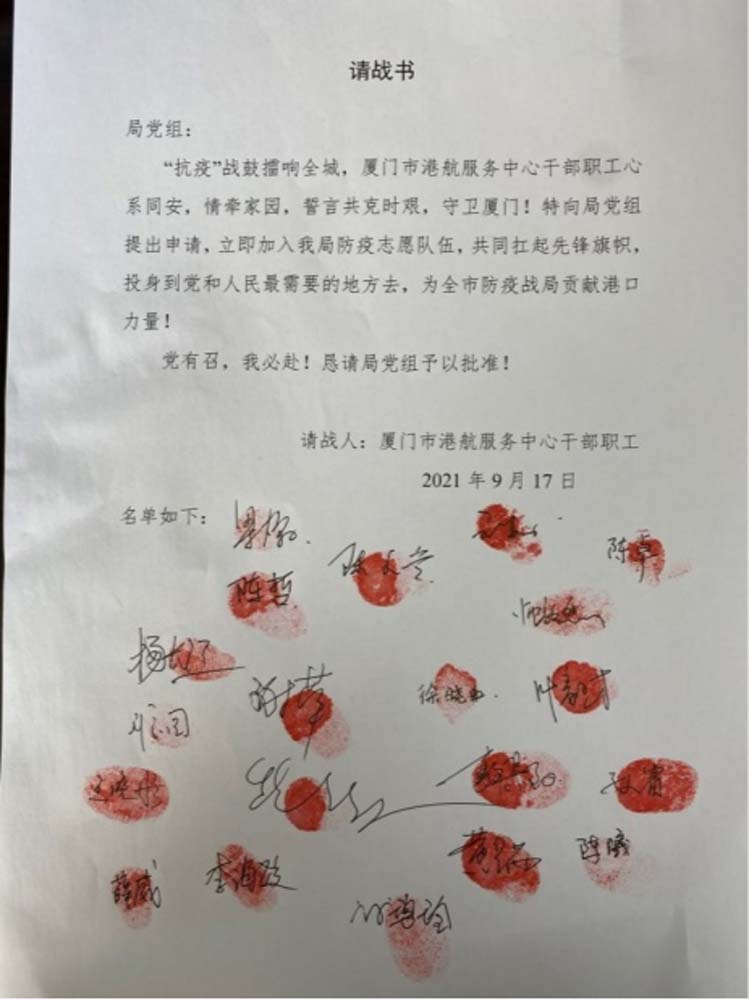 请战书
局党组：
“抗疫”战鼓擂响全城，厦门市港航服务中心干部职工心
系同安，情牵家园，誓言共克时艰，守卫厦门！特向局党组
提出申请，立即加入我局防疫志愿队伍，共同扛起先锋旗帜，
投身到党和人民最需要的地方去，为全市防疫战局贡献港口
力量！
党有召，我必赴！恳请局党组予以批准！
请战人：厦门市港航服务中心干部职工
2021 年 9 月 17 日
名单如下：
陈卓
陈哲
陈曦
薛威